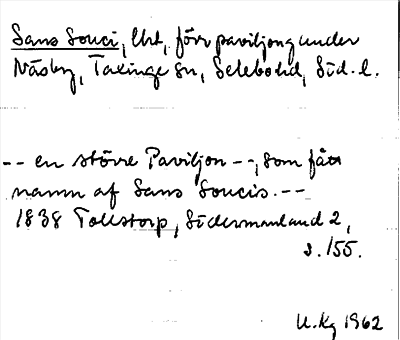 Sans Souci, lht, förr paviljong under
Näsby, Taxinge sn, Selebo hd, Söd. l.
-- en större Paviljon --, som fått
namn af Sans Soucis. --
1838 Tollstorp, Södermanland 2,
s. 155.
U. Kg 1962